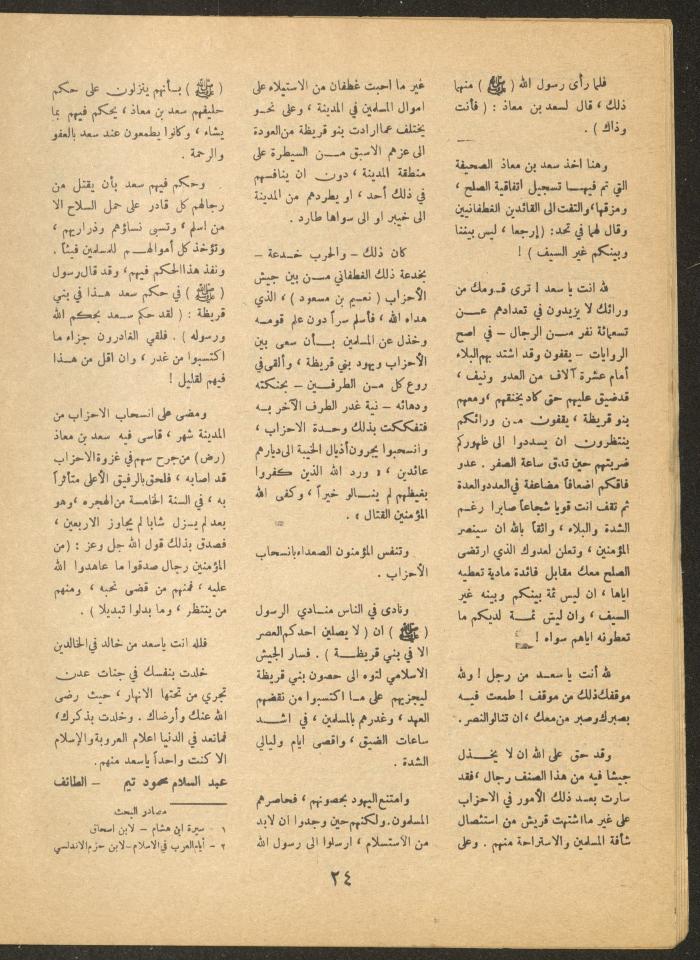 فلما رأى رسول الله ( ﷺ ) منها
ذلك ، قال لسعد بن معاذ : ( فأنت
وذاك ) .
وهنا اخذ سعد بن معاذ الصحيفة
التي تم فيها تسجيل اتفاقية الصلح ،
ومزقها، والتفت الى القائدين الغطفانيين
وقال لهما في تحد: (إرجعا ، ليس بيننا
وبينكم غير السيف ) !
لله انت يا سعد ! ترى قومك من
ورائك لا يزيدون في تعدادهم عن
تسعمائة نفر من الرجال – في اصح
الروايات – يقفون وقد اشتد بهم البلاء
أمام عشرة آلاف من العدو ونيف ،
قد ضيق عليهم حتى كاد يخنقهم ، ومعهم
بنو قريظة ، يقفون من ورائكم
ينتظرون ان يسددوا الى ظهوركم
ضربتهم حين تدق ساعة الصفر . عدو
فاقكم اضعافاً مضاعفة في العدد والعدة
ثم تقف انت قويا شجاعا صابرا رغم
الشدة والبلاء ، واثقاً بالله ان سينصر
المؤمنين ، وتعلن لعدوك الذي ارتضى
الصلح معك مقابل فائدة مادية تعطيه
اياها ، ان ليس ثمة بينكم وبينه غير
السيف ، وان ليس ثمة لديكم ما
تعطونه اياهم سواه !
لله أنت يا سعد من رجل ! ولله
موقفك ذلك من موقف ! طمعت فيه
بصبرك وصبر من معك ، ان تنالوا النصر .
وقد حق على الله ان لا يخذل
جيشا فيه من هذا الصنف رجال ، فقد
سارت بعد ذلك الأمور في الاحزاب
على غير ما اشتهت قريش من استئصال
شأفة المسلمين والاستراحة منهم . وعلى
غير ما احبت غطفان من الاستيلاء على
اموال المسلمين في المدينة ، وعلى نحو
يختلف عما ارادت بنو قريظة من العودة
الى عزهم الاسبق من السيطرة على
منطقة المدينة ، دون ان ينافسهم
في ذلك أحد ، او يطردهم من المدينة
الى خيبر او الى سواها طارد .
كان ذلك – والحرب خدعة –
بخدعة ذلك الغطفاني من بين جيش
الأحزاب ( نعيم بن مسعود ) ، الذي
هداه الله ، فأسلم سراً دون علم قومه
وخذل عن المسلمين بأن سعى بين
الأحزاب ويهود بني قريظة ، وألقى في
روع كل من الطرفين – بحنكته
ودهائه – نية غدر الطرف الآخر به
فتفككت بذلك وحدة الاحزاب ،
وانسحبوا يجرون أذيال الخيبة الى ديارهم
عائدين ، « ورد الله الذين كفروا
بغيظهم لم ينالو خيراً ، وكفى الله
المؤمنين القتال » .
وتنفس المؤمنون الصعداء بانسحاب
الأحزاب .
ونادى في الناس منادي الرسول
( ﷺ ) ان ( لا يصلين احدكم العصر
الا في بني قريظة ) . فسار الجيش
الاسلامي لتوه الى حصون بني قريظة
ليجزيهم على ما اكتسبوا من نقضهم
العهد ، وغدرهم بالمسلمين ، في اشد
ساعات الضيق ، واقصى ايام وليالي
الشدة .
وامتنع اليهود بحصونهم ، فحاصرهم
المسلمون. ولكنهم حين وجدوا ان لابد
من الاستسلام ، ارسلوا الى رسول الله
( ﷺ ) بأنهم ينزلون على حكم
حليفهم سعد بن معاذ ، يحكم فيهم بما
يشاء ، وكانوا يطمعون عند سعد بالعفو
والرحمة .
وحكم فيهم سعد بأن يقتل من
رجالهم كل قادر على حمل السلاح الا
من اسلم ، وتسبى نساؤهم وذراريهم ،
وتؤخذ كل أموالهم للمسلمين فيئاً .
ونفذ هذا الحكم فيهم، وقد قال رسول
( ﷺ ) في حكم سعد هذا في بني
قريظة : ( لقد حكم سعد بحكم الله
ورسوله ) . فلقي الغادرون جزاء ما
اكتسبوا من غدر ، وان اقل من هذا
فيهم لقليل !
ومضى على انسحاب الاحزاب من
المدينة شهر ، قاسى فيه سعد بن معاذ
(رض) من جرح سهم في غزوة الاحزاب
قد اصابه ، فلحق بالرفيق الأعلى متأثراً
به ، في السنة الخامسة من الهجرة ، وهو
بعد لم يزل شابا لم يجاوز الاربعين ،
فصدق بذلك قول الله جل وعز : (من
المؤمنين رجال صدقوا ما عاهدوا الله
عليه ، فمنهم من قضى نحبه ، ومنهم
من ينتظر ، وما بدلوا تبديلا ) .
فلله انت يا سعد من خالد في الخالدين
خلدت بنفسك في جنات عدن
تجري من تحتها الانهار ، حيث رضى
الله عنك وأرضاك . وخلدت بذكرك،
فما نعد في الدنيا اعلام العروبة والإسلام
الا كنت واحداً يا سعد منهم.
عبد السلام محمود تيم – الطائف
مصادر البحث
١ – سيرة ابن هشام – لابن اسحاق
٢ – أيام العرب في الاسلام – لابن حزم الاندلسي
٢٤